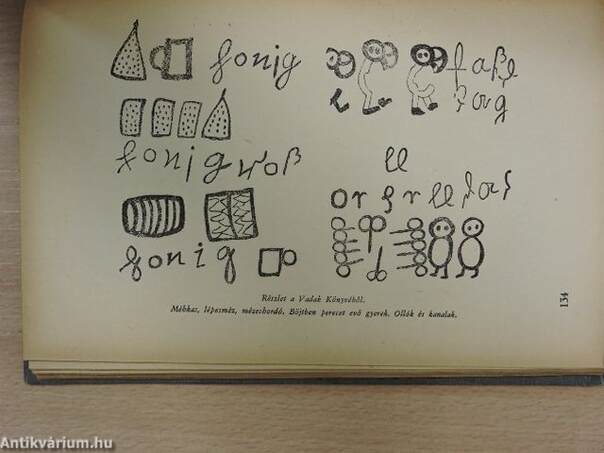 fonig
faße
tag
fonigwoß
ll
fonig
Részlet a Vadak Könyvéből.
Méhkas, lépesméz, mézeshordó. Bőjtben perecet evő gyerek. Ollók és kanalak.
134
Antikvárium.hu